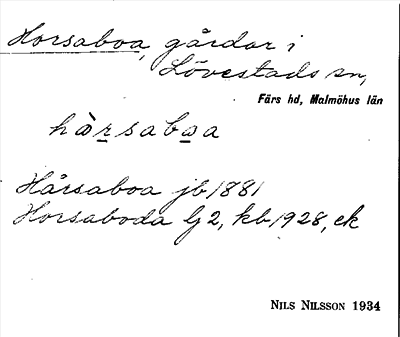 Horsaboa, gårdar i
Lövestads sn,
Färs hd, Malmöhus län
hòrsaboa
Hårsaboa jb 1881
Horsaboda lj 2, kb 1928, ek
NILS NILSSON 1934